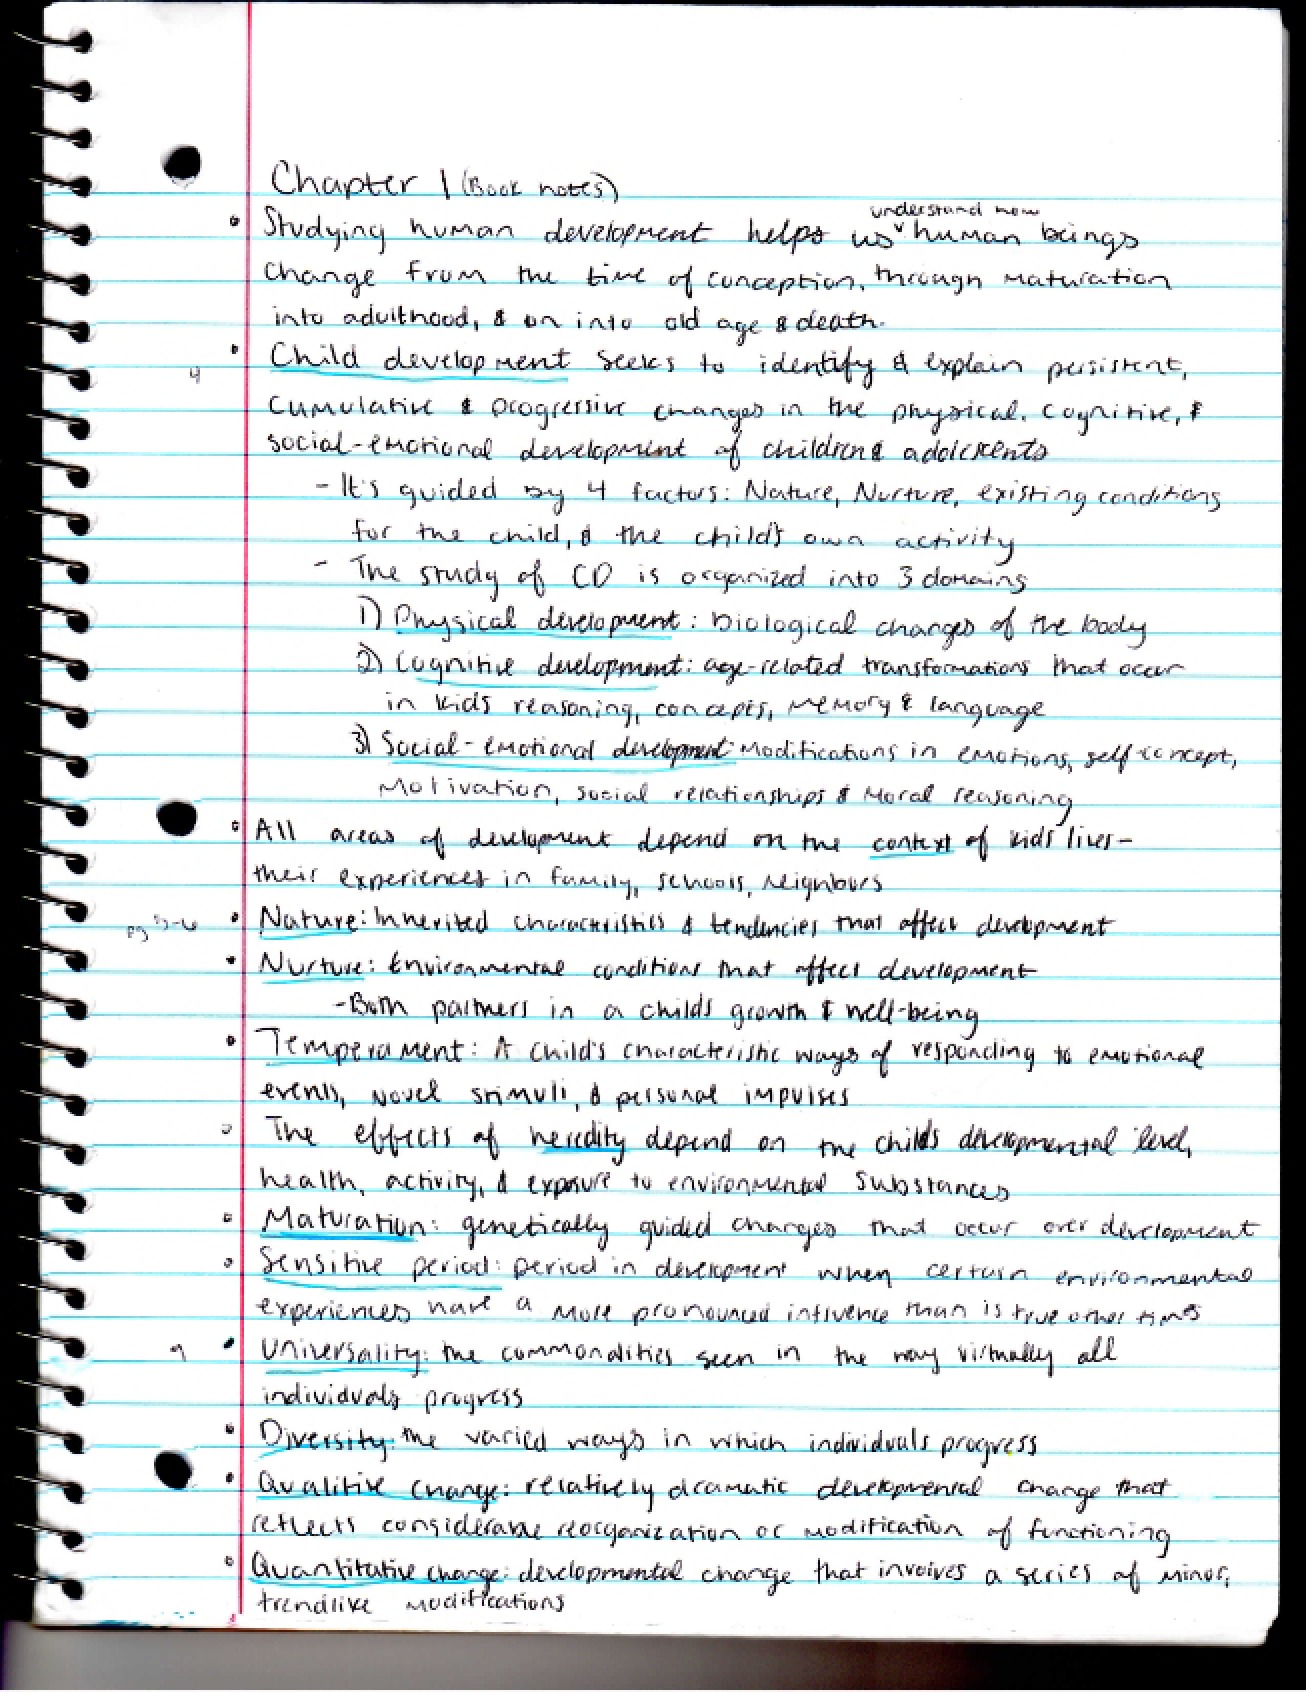 Chapter 1 (Book notes)
understand how
• Studying human development helps us ˅ human beings
change from the time of conception, through maturation
into adulthood, & on into old age & death.
• Child development seeks to identify & explain persistent,
4
cumulative & progressive changes in the physical, cognitive, &
social-emotional development of children & adolescents
- It's guided by 4 factors: Nature, Nurture, existing conditions
for the child, & the child's own activity
- The study of CD is organized into 3 domains
1) Physical development: biological changes of the body
2) Cognitive development: age-related transformations that occur
in kids reasoning, concepts, memory & language
3) Social-emotional development: modifications in emotions, self-concept,
motivation, social relationships & moral reasoning
• All areas of development depend on the context of kids' lives-
their experiences in family, schools, neighbors
pg • Nature: Inherited characteristics & tendencies that affect development
• Nurture: Environmental conditions that affect development
- Both partners in a child's growth & well-being
• Temperament: A child's characteristic ways of responding to emotional
events, novel stimuli, & personal impulses
• The effects of heredity depend on the child's developmental level,
health, activity, & exposure to environmental substances
• Maturation: genetically guided changes that occur over development
• Sensitive period: period in development when certain environmental
experiences have a more pronounced influence than is true other times
9 • Universality: the commonalities seen in the way virtually all
individuals progress
• Diversity: the varied ways in which individuals progress
• Qualitive change: relatively dramatic developmental change that
reflects considerable reorganization or modification of functioning
• Quantitative change: developmental change that involves a series of minor,
trendlike modifications